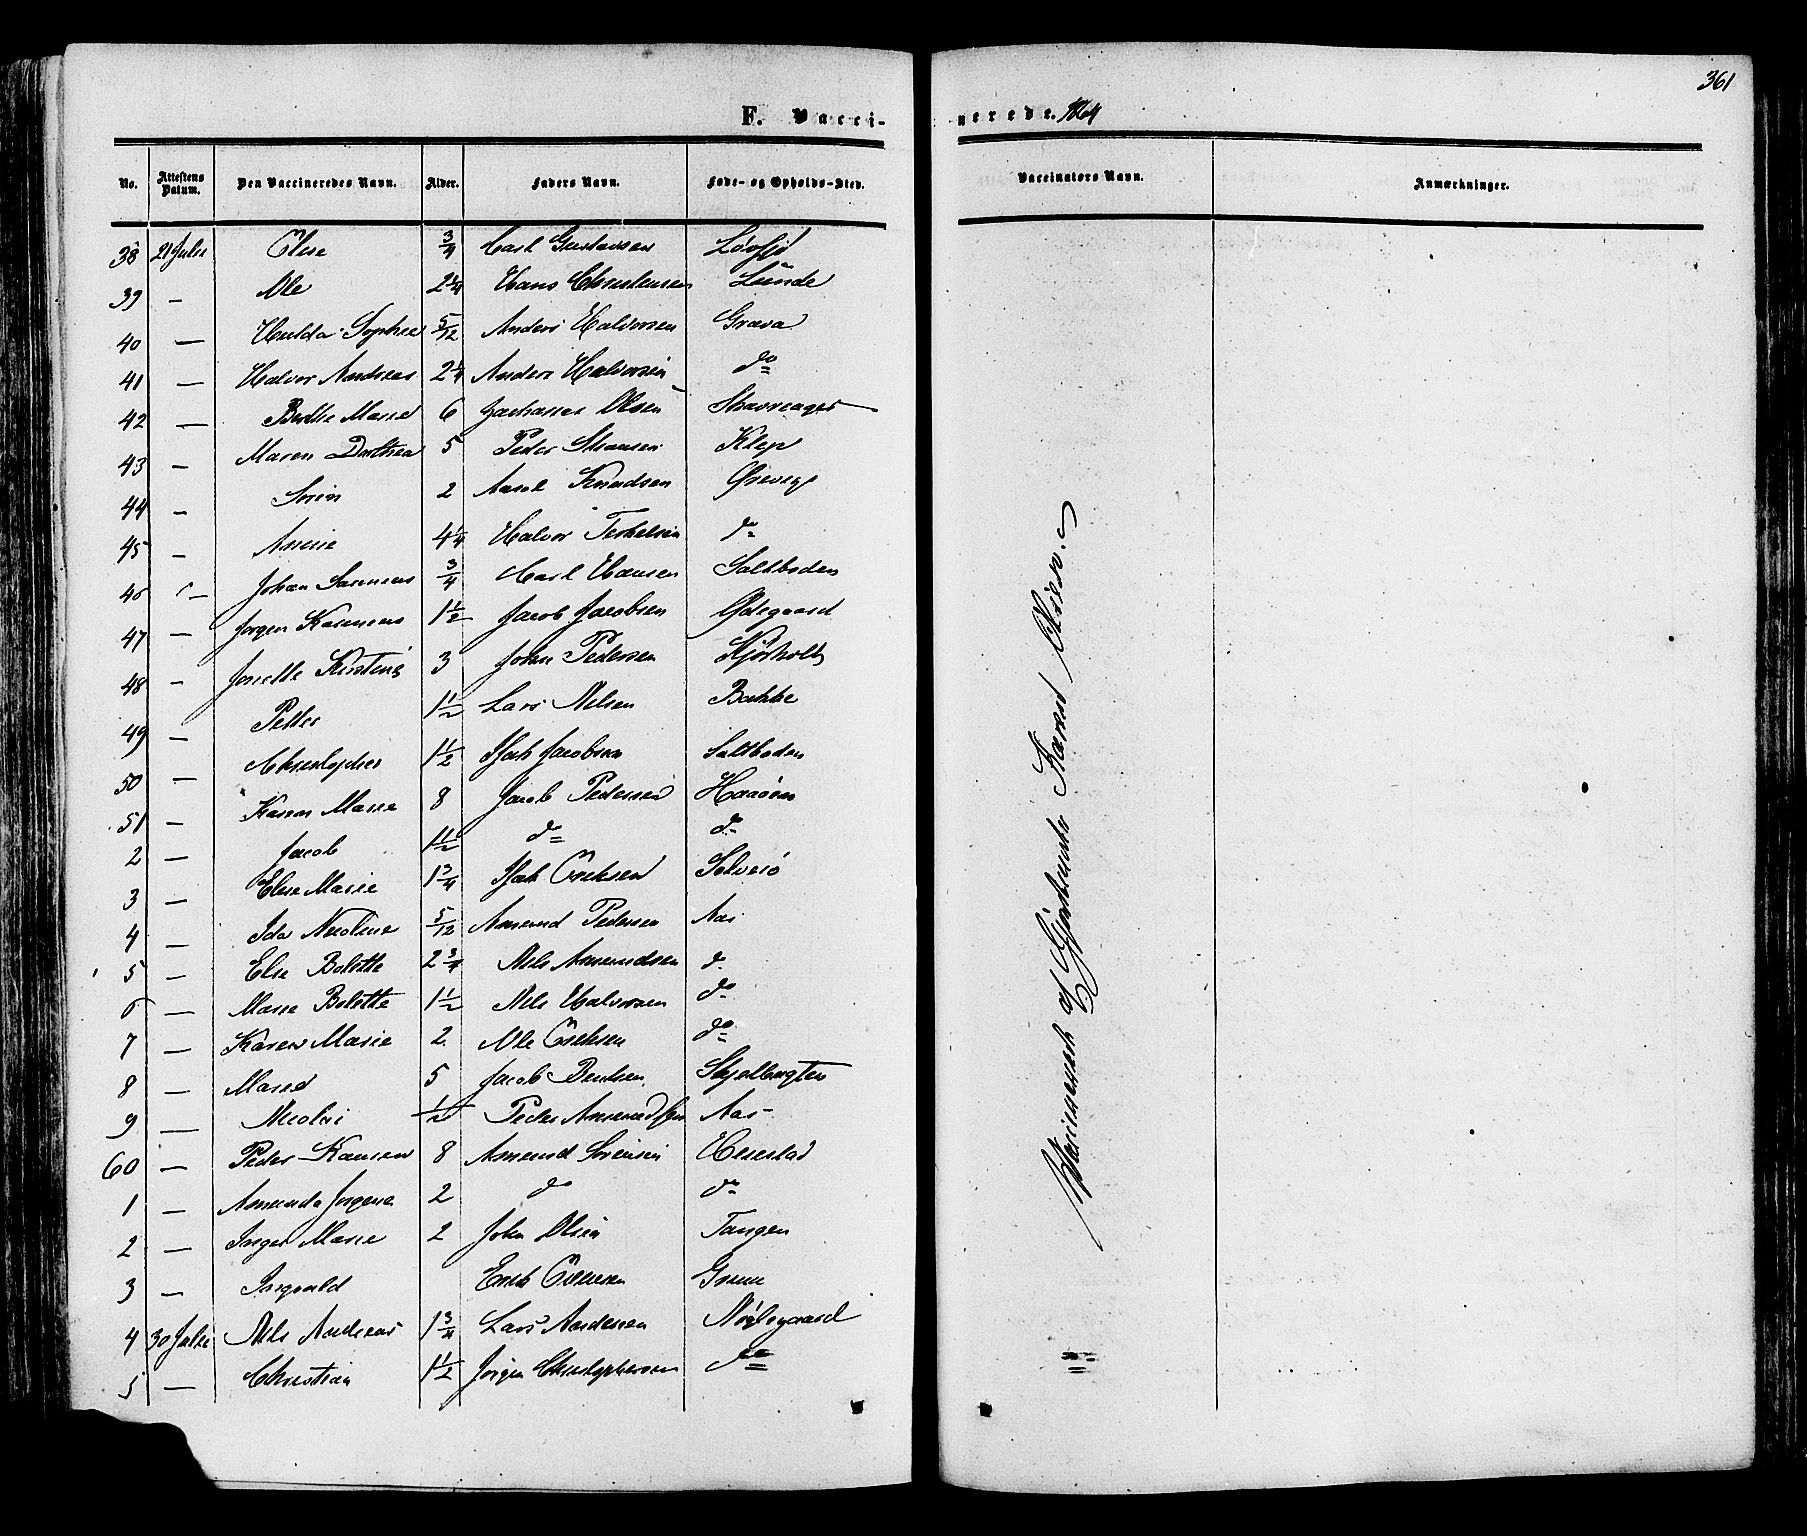 361
F. Vaccinerede. 1864
No. Attestens Datum. Den Vaccineredes Navn. Alder. Faders Navn. Føde- og Opholds-Sted. Vaccinators Navn. Anmærkninger.
38 21 Julie Elise 3/4 Carl Gustavsen Løvsjø
39 — Ole 2 1/4 Hans Christensen Lunde
40 — Hulda Sophie 5/12 Anders Halvorsen Grava
41 — Halvor Andreas 2 1/4 Anders Halvorsen do
42 — Berthe Marie 6 Zacharias Olsen
43 — Maren Dorthea 5 Peder Klep
44 — Sørin 2 Knudsen
45 — 4 1/4 Halvor Terkelsen do
46 — Johan 3/4 Carl Hansen Saltboden
47 — Jørgen Rasmus 1 1/2 Jacob Jacobsen Ødegaard
48 — Kirstine 3 John Pedersen Kjørholt
49 — Petter 1 1/2 Lars Nilsen Bakke
50 — Christopher 1 1/2 Isak Jacobsen Saltboden
51 — Karen Marie 8 Jacob Pedersen Haaøen
2 — Jacob 1 1/2 do do
3 — Elise Marie 1 3/4 Isak Ericksen
4 — Ida Nicoline 5/12 Amund Pedersen Aas
5 — Else Bolette 2 3/4 Nils Amundsen do
6 — Marie Bolette 1 1/2 Nils Halvorsen do
7 — Karen Marie 2 Ole Ericksen do
8 — Maren 5 Jacob Bentsen Skjelbugten
9 — Nicolai 1/2 Peder Amundsen Aas
60 — Peder Hansen 8 Amund Sørensen Herestad
1 — Amunda Jørgine 2 do do
2 — Inger Marie 2 John Olsen Tangen
3 — Ingvald Erik
4 30 Julie Nils Andreas 1 3/4 Lars Andersen Nordegaard
5 — Christian 1 1/2 Jørgen Christophersen do
Vaccineret af Gjordemoder Maren Olsen.